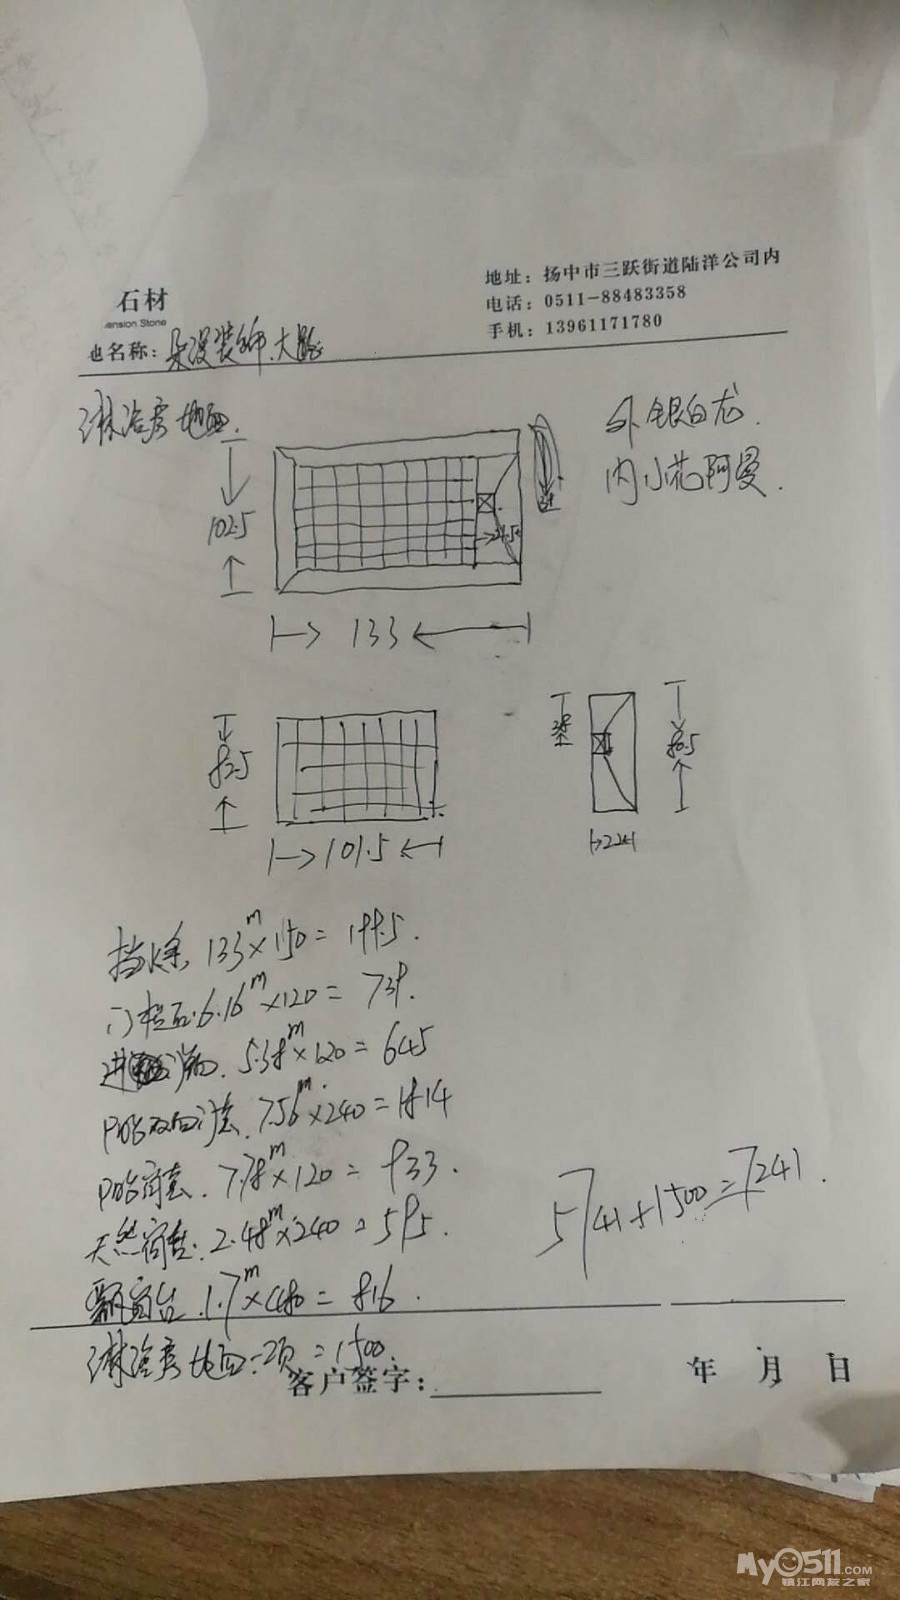 地址：扬中市三跃街道陆洋公司内
石材
电话：0511-88483358
ension Stone
手机：13961171780
名称：朵漫装饰.大
淋浴房地面.
外银白龙.
内小花阿曼.
102.5
24.5
133
82.5
80.5
101.5
22
挡水条 133m×150=1995.
门槛石.6.16m×120=739.
进 5.38m×120=645
阳台双包门套.7.56m×240=1814
阳台窗套.7.78m×120=933.
天然窗套.2.48m×240=595.
飘窗台.1.7m×480=816.
5741+1500=7241.
淋浴房地面一项=1500.
客户签字：
年 月 日
My0511.COM
镇江网友之家